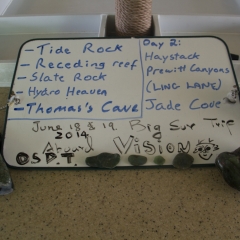 - Tide Rock
- Receding reef
- Slate Rock
- Hydro Heaven
- Thomas's Cave
Day 2:
Haystack
Prewitt Canyons
(LING LANE)
Jade Cove
June 18 & 19 Big Sur Trip
2014 Around Vision
O.S.P.T.